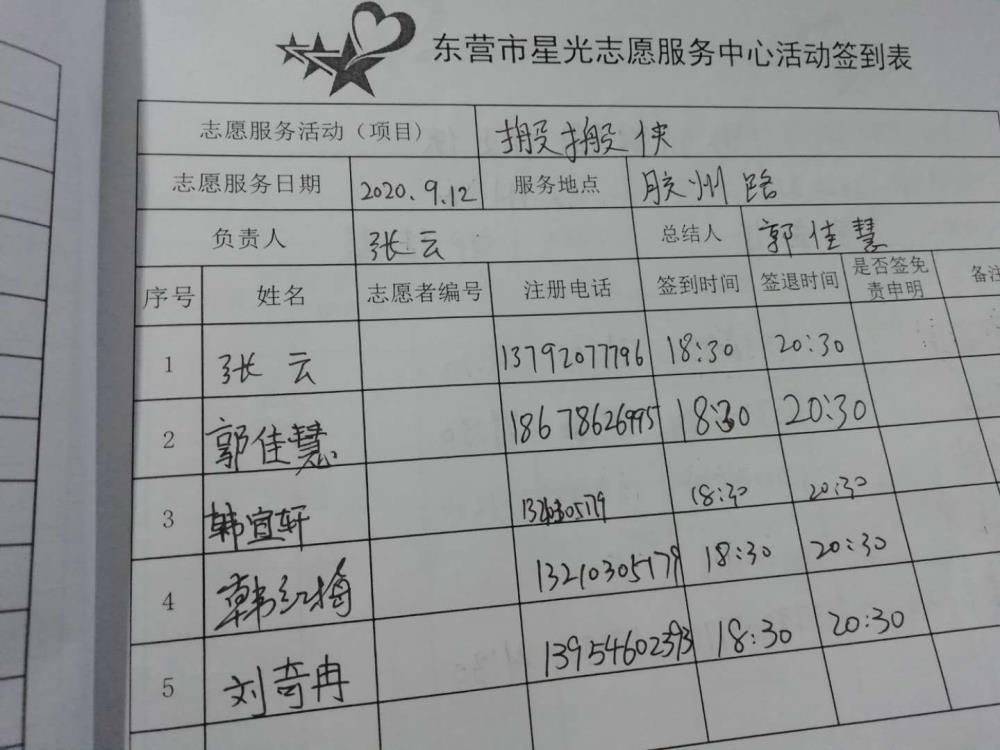 东营市星光志愿服务中心活动签到表
志愿服务活动（项目） 搬搬侠
志愿服务日期 2020.9.12 服务地点 胶州路
负责人 张云 总结人 郭佳慧
序号 姓名 志愿者编号 注册电话 签到时间 签退时间 是否签免责申明 备注
1 张云 13792077796 18:30 20:30
2 郭佳慧 18678626995 18:30 20:30
3 韩宜轩 18:30 20:30
4 韩红梅 13210305179 18:30 20:30
5 刘奇冉 13954602393 18:30 20:30